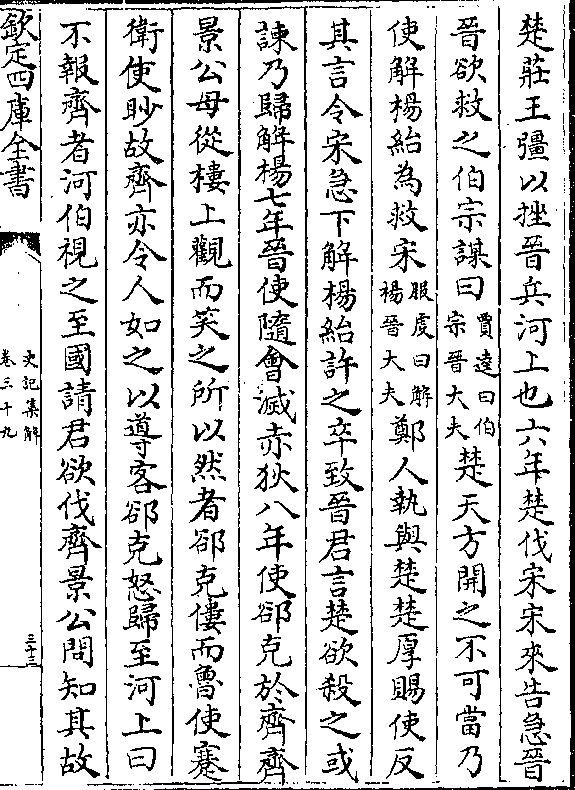 楚莊王彊以挫晉兵河上也六年楚伐宋宋來告急晉
晉欲救之伯宗謀曰賈逵曰伯宗晉大夫楚天方開之不可當乃
使解楊紿為救宋服虔曰解楊晉大夫鄭人執與楚楚厚賜使反
其言令宋急下解楊紿許之卒致晉君言楚欲殺之或
諫乃歸解楊七年晉使隨會滅赤狄八年使郤克於齊齊
景公母從樓上觀而笑之所以然者郤克僂而魯使蹇
衛使眇故齊亦令人如之以導客郤克怒歸至河上曰
不報齊者河伯視之至國請君欲伐齊景公問知其故
欽定四庫全書
史記集解
卷三十九
三十三